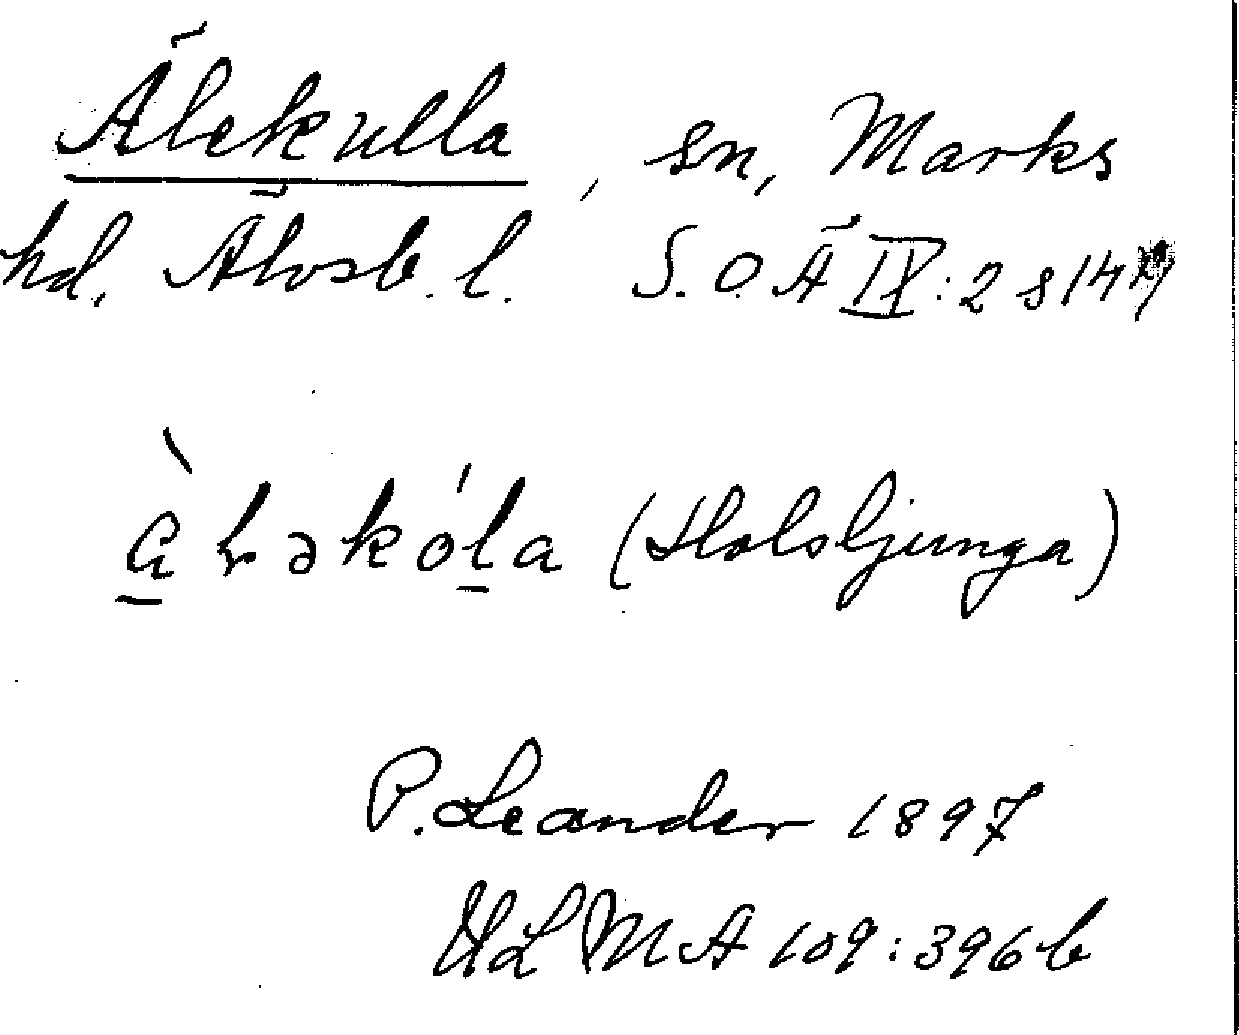 Älekulla, sn, Marks
hd. Älvsb. l. S. O. Ä IX: 2 s 147
(Holsljunga)
P. Leander 1897
ULMA 109:396b